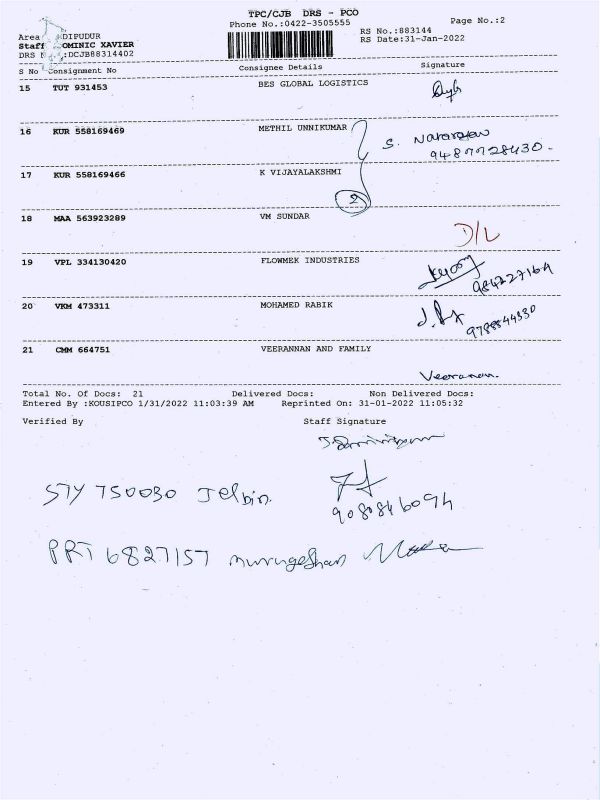 TPC/CJB DRS - PCO
Phone No.:0422-3505555
Page No.:2
RS No.:883144
RS Date:31-Jan-2022
Area DIPUDUR
Staff OMINIC XAVIER
DRS :DCJB88314402
S No Consignment No Consignee Details Signature
15 TUT 931453 BES GLOBAL LOGISTICS
16 KUR 558169469 METHIL UNNIKUMAR
S.
17 KUR 558169466 K VIJAYALAKSHMI
2
18 MAA 563923289 VM SUNDAR
D/L
19 VPL 334130420 FLOWMEK INDUSTRIES
20 VKM 473311 MOHAMED RABIK
9788844330
21 CMM 664751 VEERANNAN AND FAMILY
Veerannan.
Total No. Of Docs: 21 Delivered Docs: Non Delivered Docs:
Entered By :KOUSIPCO 1/31/2022 11:03:39 AM Reprinted On: 31-01-2022 11:05:32
Verified By Staff Signature
STY 750030 Jelbin
9080846094
PRT 6827157 murugeshan